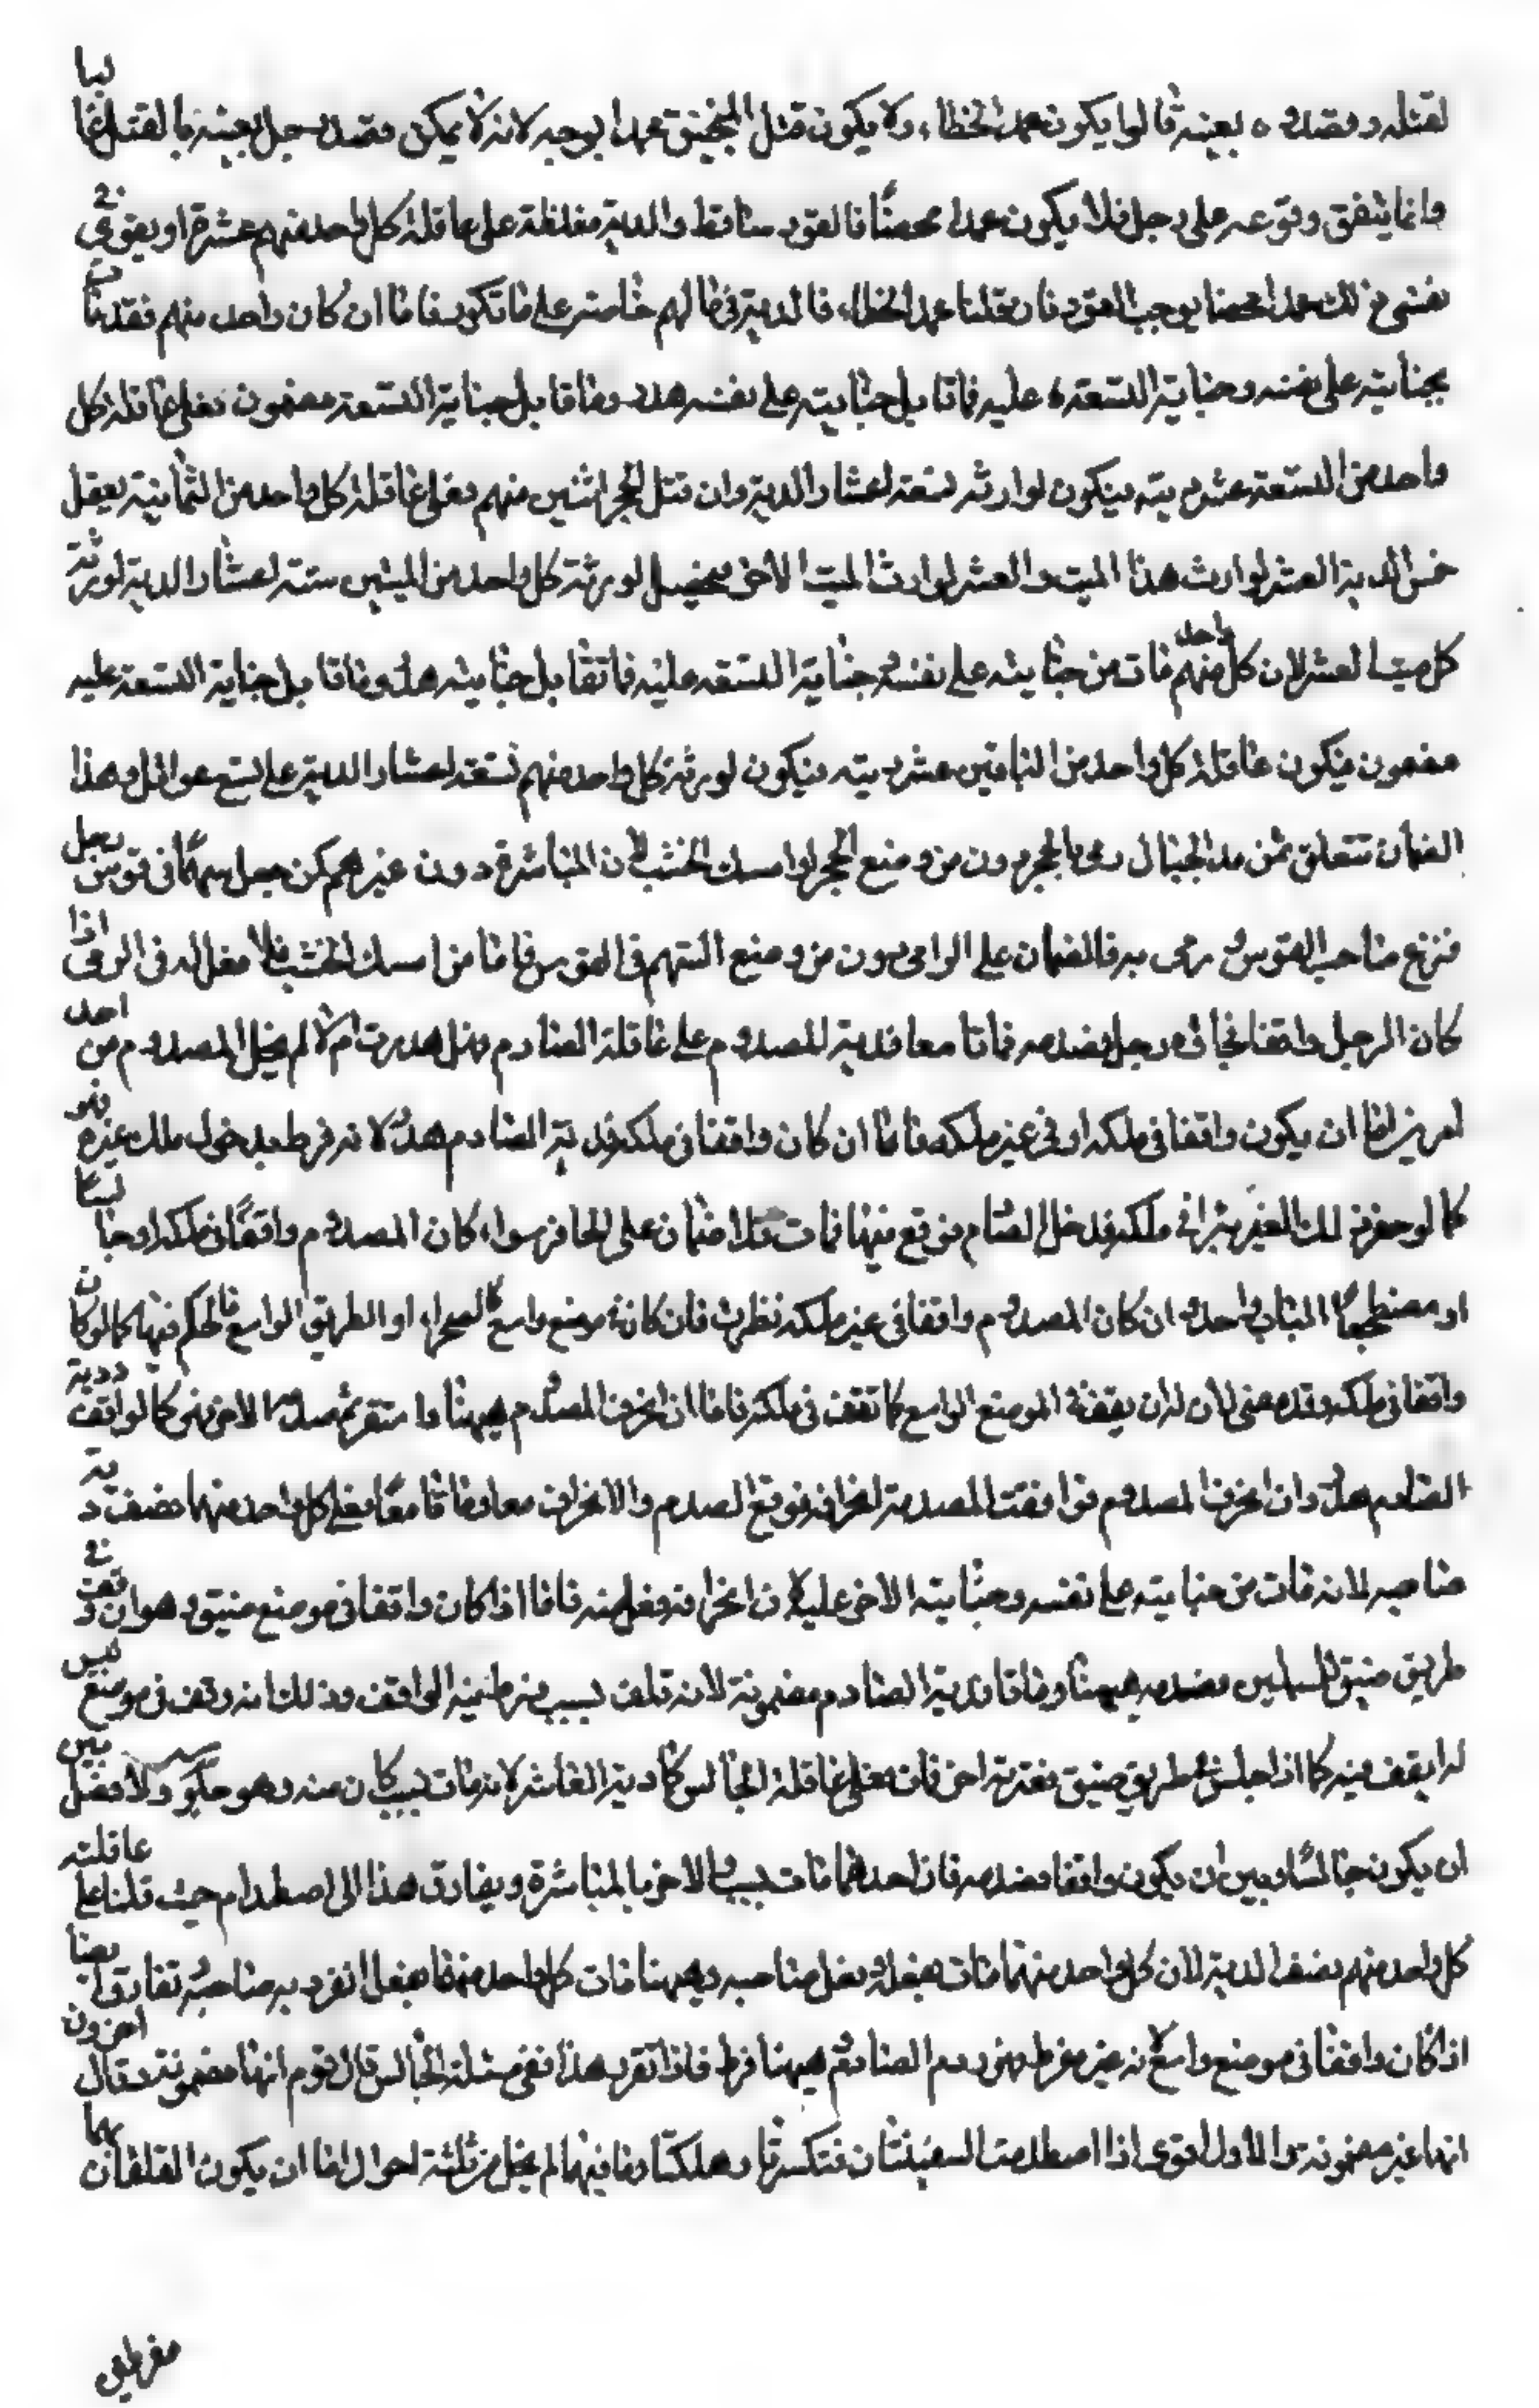 لقتله وقصدوه بعينه قالوا يكون عمد الخطاء، ولا يكون قتل المنجنيق عمدا بوجه لانه لا يمكن قصد رجل بعينه بالقتل غالبا
وانما يتفق وقوعه على رجل فلا يكون عمدا محضًا فالقود ساقط والدية مغلظة على عاقلة كل واحد منهم عشرة او يقوى في
نفسى ذلك عمدا محضا يوجب القود فان قلنا عمد الخطاء، فالدية في مالهم خاصة على ما تكرر فاما ان كان واحد منهم فقد مات
بجنايته على نفسه وجناية التسعة عليه فما قابل جنايته على نفسه هدر وما قابل جناية التسعة مضمون فعلى عاقلة كل
واحد من التسعة عشر ديته فيكون لوارثه تسعة اعشار الدية وان قتل الحجر اثنين منهم فعلى عاقلة كل واحد من الثمانية يعقل
خمس الدية العشر لوارث هذا الميت والعشر لوارث الميت الاخر فيحصل لورثة كل واحد من الميتين ستة اعشار الدية لورثة
كل ميت العشر لان كل واحد منهم مات من جنايته على نفسه وجناية التسعة عليه فما تقابل جنايته هدر وما قابل جناية التسعة عليه
مضمون فيكون عاقلة كل واحد من الباقين عشر ديته فيكون لورثة كل واحد منهم تسعة اعشار الدية على تسع عواقل وهذا
الضمان تتعلق بمن مد الحبال ورمى بالحجر دون من وضع الحجر او امسك الخشب لان المباشرة دون غيرهم كمن جعل سهمًا في قوس رجل
فنزع صاحب القوس ورمى به فالضمان على الرامى دون من وضع السهم في القوس فاما من امسك الخشب فلا فعل له في الرمى اذا
كان الرجل واقفا فجاءه رجل فصدمه فماتا معا فدية المصدوم على عاقلة الصادم وهل هدرت ام لا لم يخل المصدوم من احد
امرين اما ان يكون واقفا في ملكه او في غير ملكه فاما ان كان واقفا في ملكه فدية الصادم هدر لانه فرط بدخول ملك غيره فهو
كما لو حفر ذلك الغير بئرا في ملكه فدخل الصادم فوقع فيها فمات فلا ضمان على الحافر سواء كان المصدوم واقفًا في ملكه او جالسا
او مضطجعًا الباب واحد وان كان المصدوم واقفا في غير ملكه نظرت فان كان في موضع واسع كالصحراء او الطريق الواسع فالحكم فيها كما لو كان
واقفا في ملكه وقد مضى لان له ان يقف في الموضع الواسع كما تقف في ملكه فاما ان انحرف المصدوم ههنا واستقر ثم صدم الاخر فهو كالواقف ودية
الصادم هدر وان انحرف المصدوم فوافقت الصدمة انحرافه فوقع الصدم والانحراف معا وماتا معًا فعلى كل واحد منهما نصف دية
صاحبه لانه مات من جنايته على نفسه وجناية الاخر عليه لان انحرافه فعل منه فاما اذا كان واقفا في موضع ضيق وهو ان وقف في
طريق ضيق للمسلمين فصدمه ههنا وماتا فدية الصادم مضمونة لانه تلف بسبب فرط فيه الواقف وذلك انه وقف في موضع ليس
له ان يقف فيه كما اذا جلس في طريق ضيق فعثر به اخر فمات فعلى عاقلة الجالس كمال دية العاثر لانه مات بسبب كان منه وهو جلوسه ولا فصل بين
ان يكون جالسًا وبين ان يكون واقفا فصدمه فان احدهما مات بسبب والاخر بالمباشرة ويفارق هذا الى اصطدام حيث قلنا على عاقلته
كل واحد منهم نصف الدية لان كل واحد منهما مات بفعله وفعل صاحبه وههنا مات كل واحد منهما بفعل انفرد به صاحبه وتفارق ايضا
اذا كان واقفا في موضع واسع لانه غير مفرط فهدر دم الصادم وههنا فرط فاذا تقرر هذا ففى مسئلة الجالس قال قوم انها مضمونة وقال اخرون
انها غير مضمونة والاول اقوى اذا اصطدمت السفينتان فتكسرتا وهلكتا وما فيهما لم يخل من ثلثة احوال اما ان يكون القلفان بهما
مفرطين